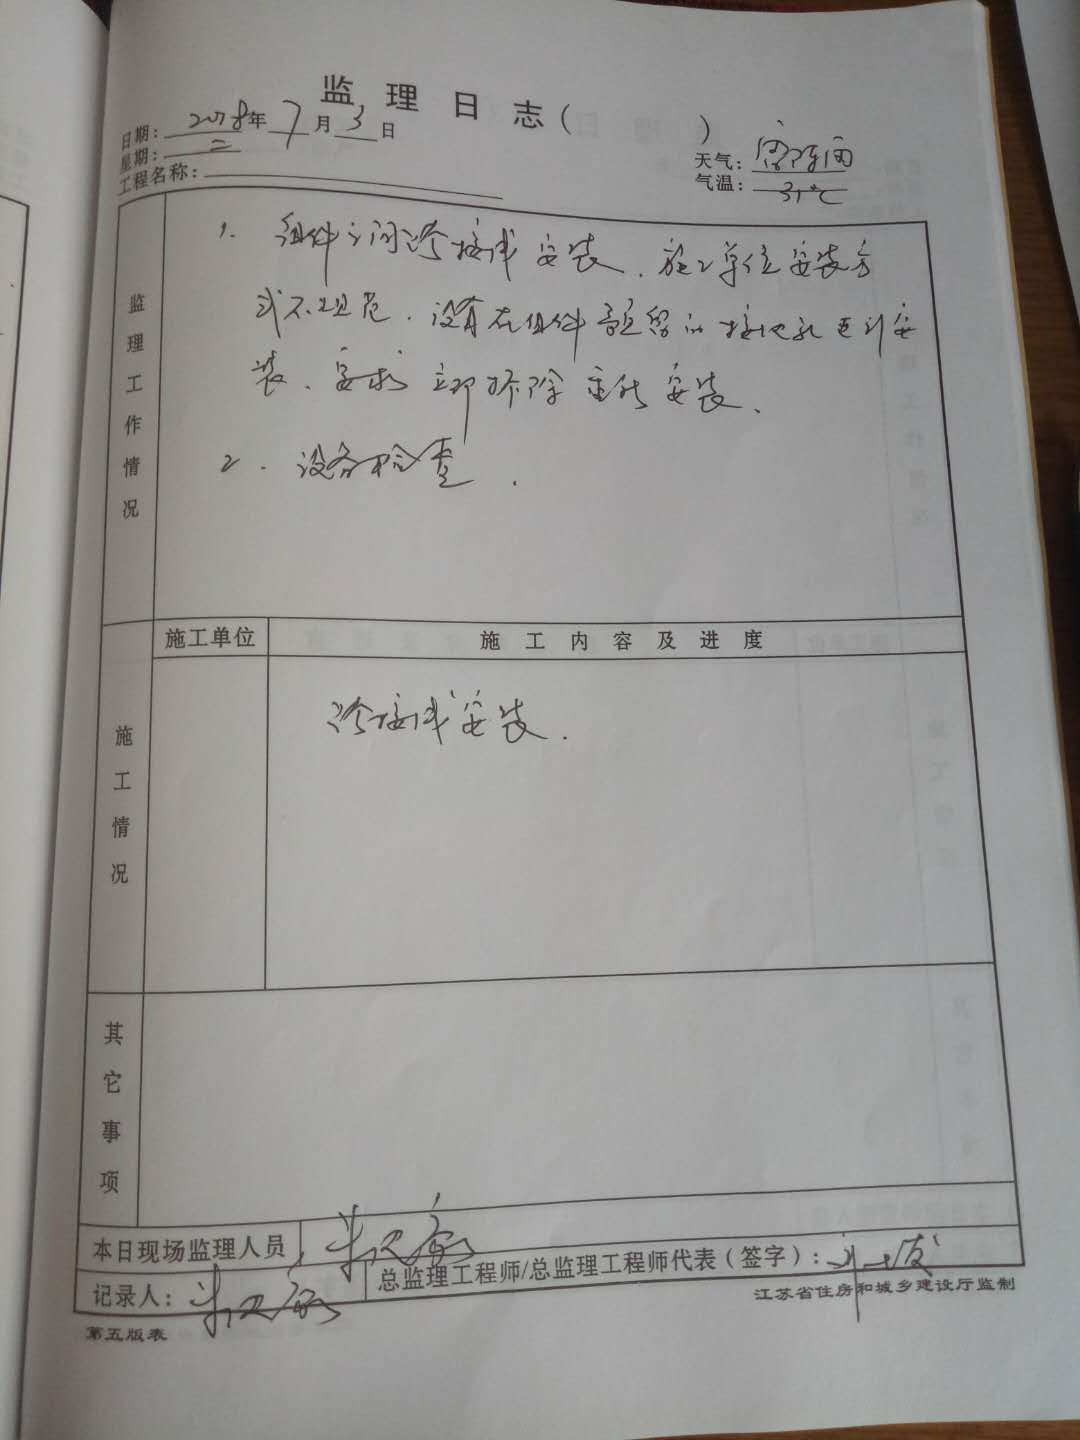 监理日志（ ）
日期：2018年7月3日
星期：二
天气：雷阵雨
气温：31℃
工程名称：
监理工作情况
1. 组件之间跨接线安装、施工单位安装方
式不规范、没有在组件预留的接地孔进行安
装、要求立即拆除重新安装、
2. 设备检查.
施工情况
施工单位
施工内容及进度
跨接线安装.
其它事项
本日现场监理人员
记录人：
总监理工程师/总监理工程师代表（签字）：
第五版表
江苏省住房和城乡建设厅监制